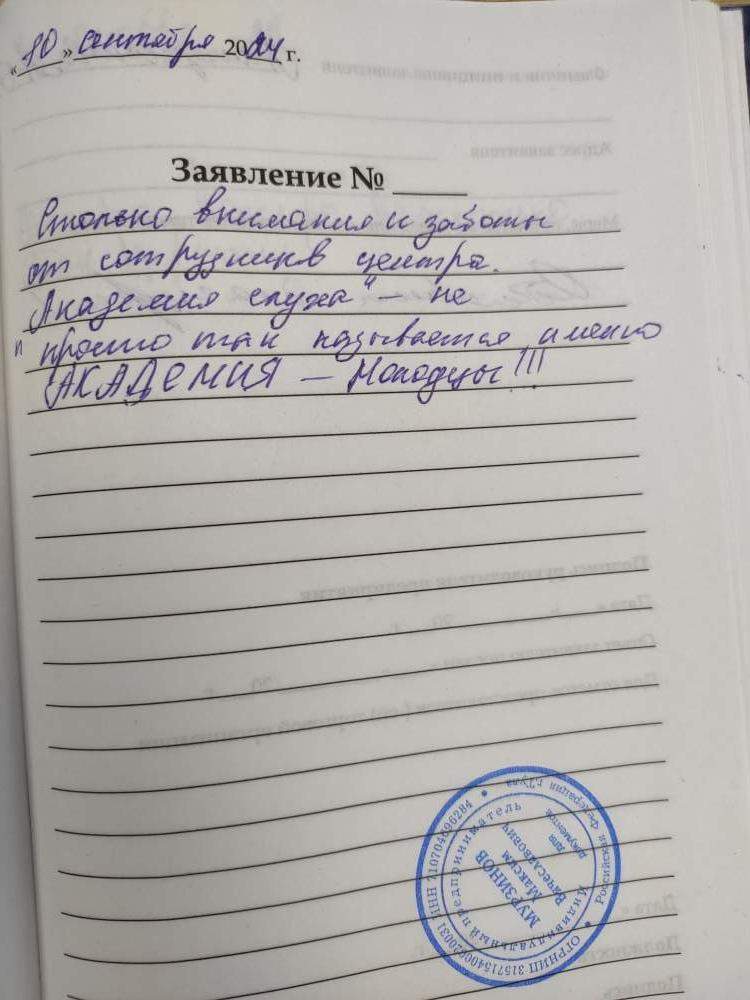 «10» сентября 2024 г.
Заявление № ____
Столько внимания и заботы
от сотрудников центра.
"Академия слуха" – не
просто так называется, именно
АКАДЕМИЯ – Молодцы!!!
Российская Федерация г.Тула
Индивидуальный предприниматель
МУРЗИНОВ
Максим
Вячеславович
для
документов